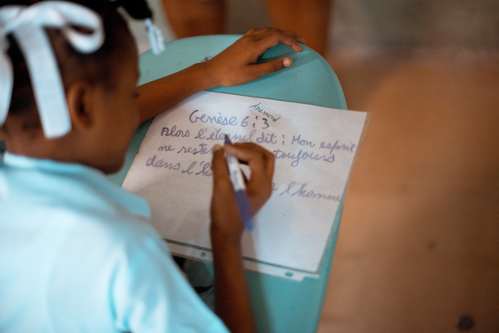 Genèse 6:3
Alors l'éternel dit : Mon esprit
ne reste toujours
dans l'homme